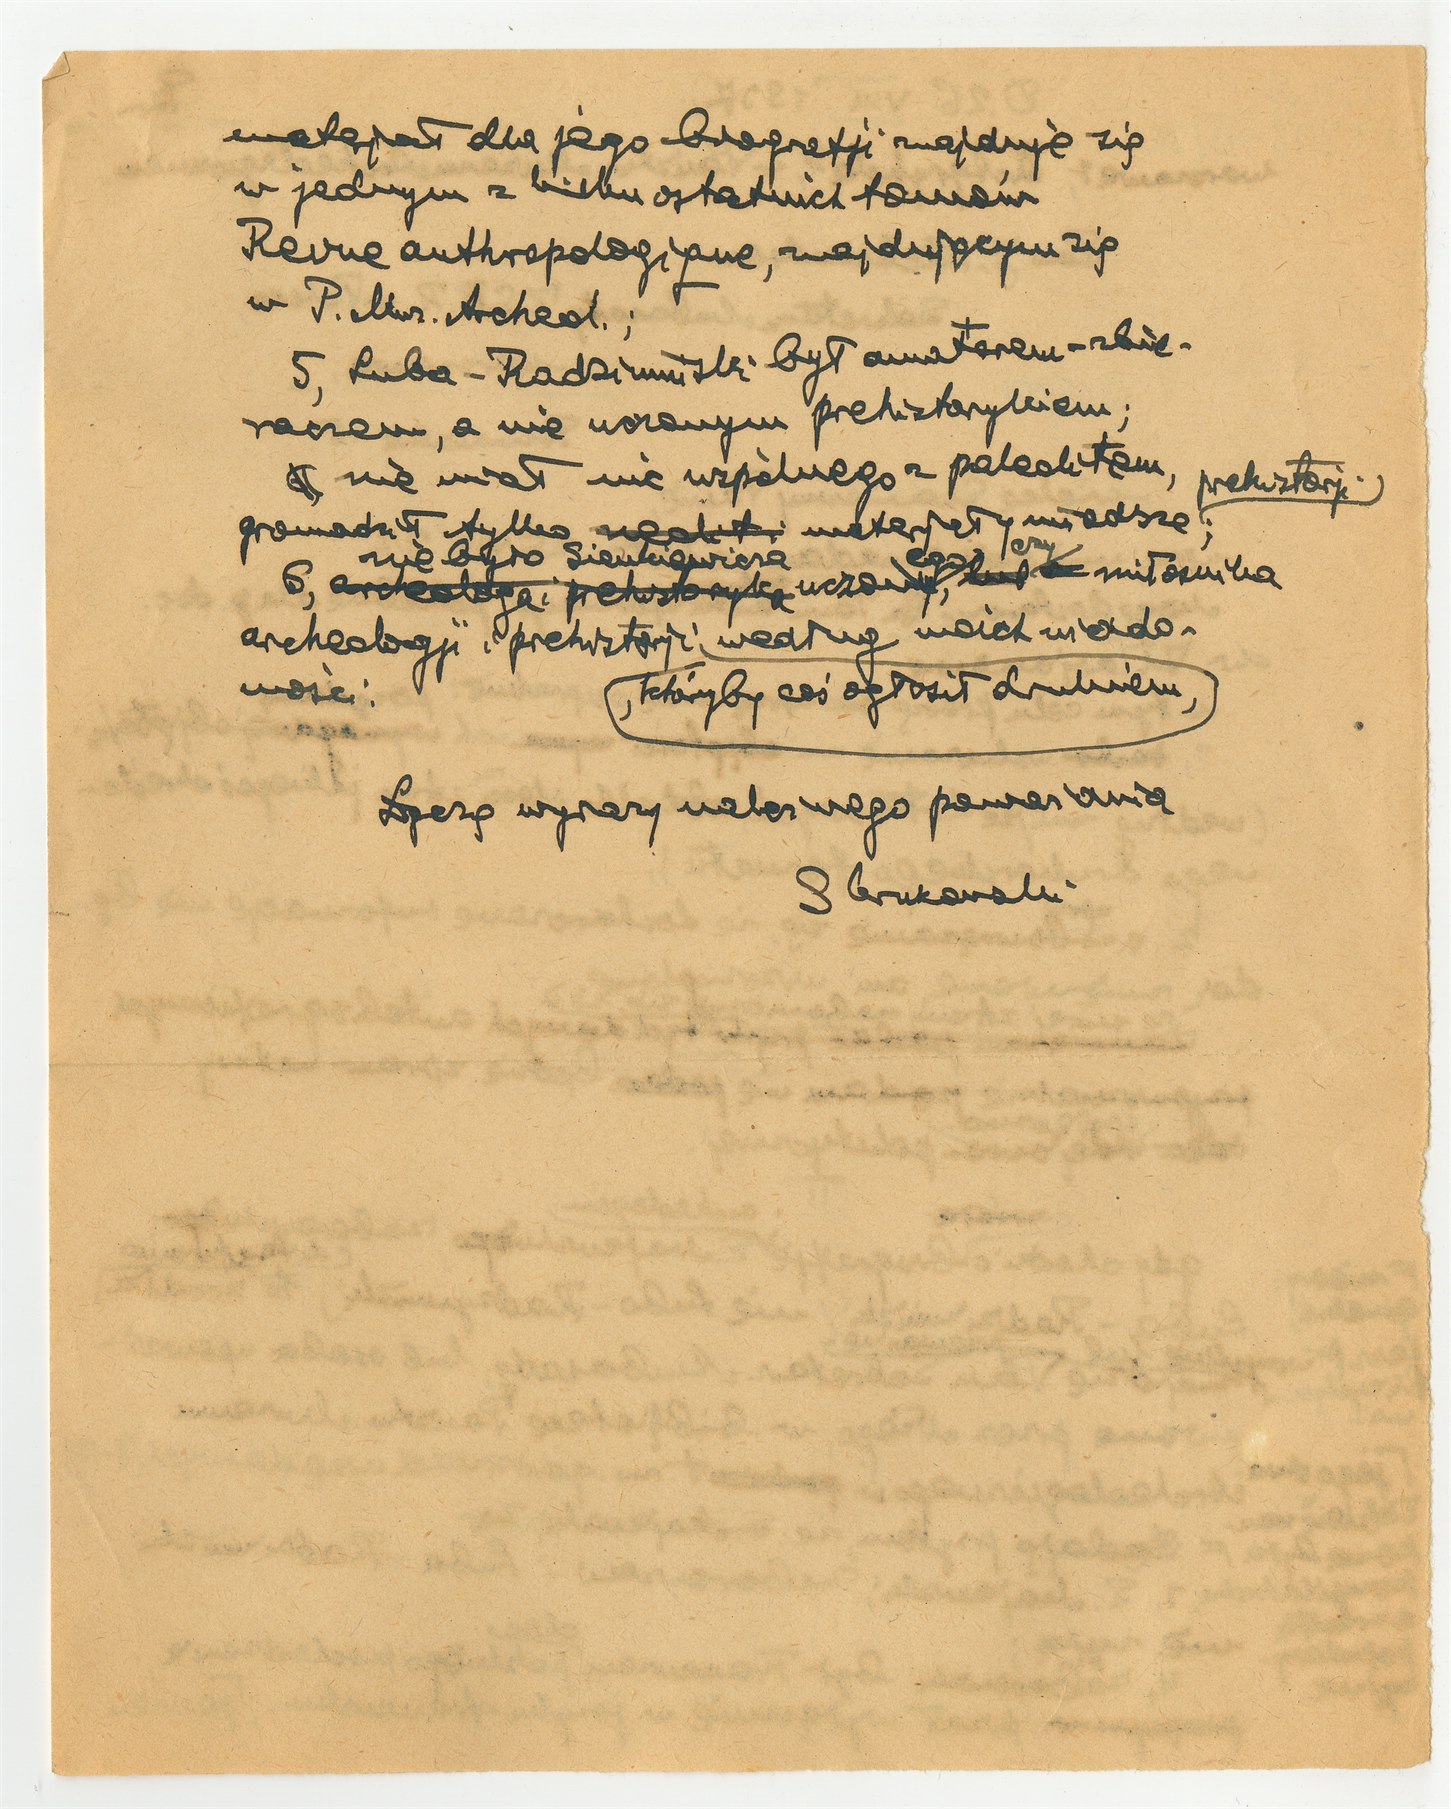 materjał dla jego biografji znajduje się
w jednym z kilku ostatnich tomów
Revue anthropologique, znajdującym się
w P. Muz. Archeol.;
5, Luba-Radzimiński był amatorem-zbie-
raczem, a nie uczonym prehistorykiem;
nie miał nic wspólnego z paleolitem, prehistorji
gromadził tylko neolit i materjały młodsze;
nie było Sienkiewicza ego czy
6, archeologa i prehistoryka uczony, lub miłośnika
archeologji i prehistorji, według moich wiado-
mości.
, któryby coś ogłosił drukiem,
Łączę wyrazy należnego poważania
S Krukowski